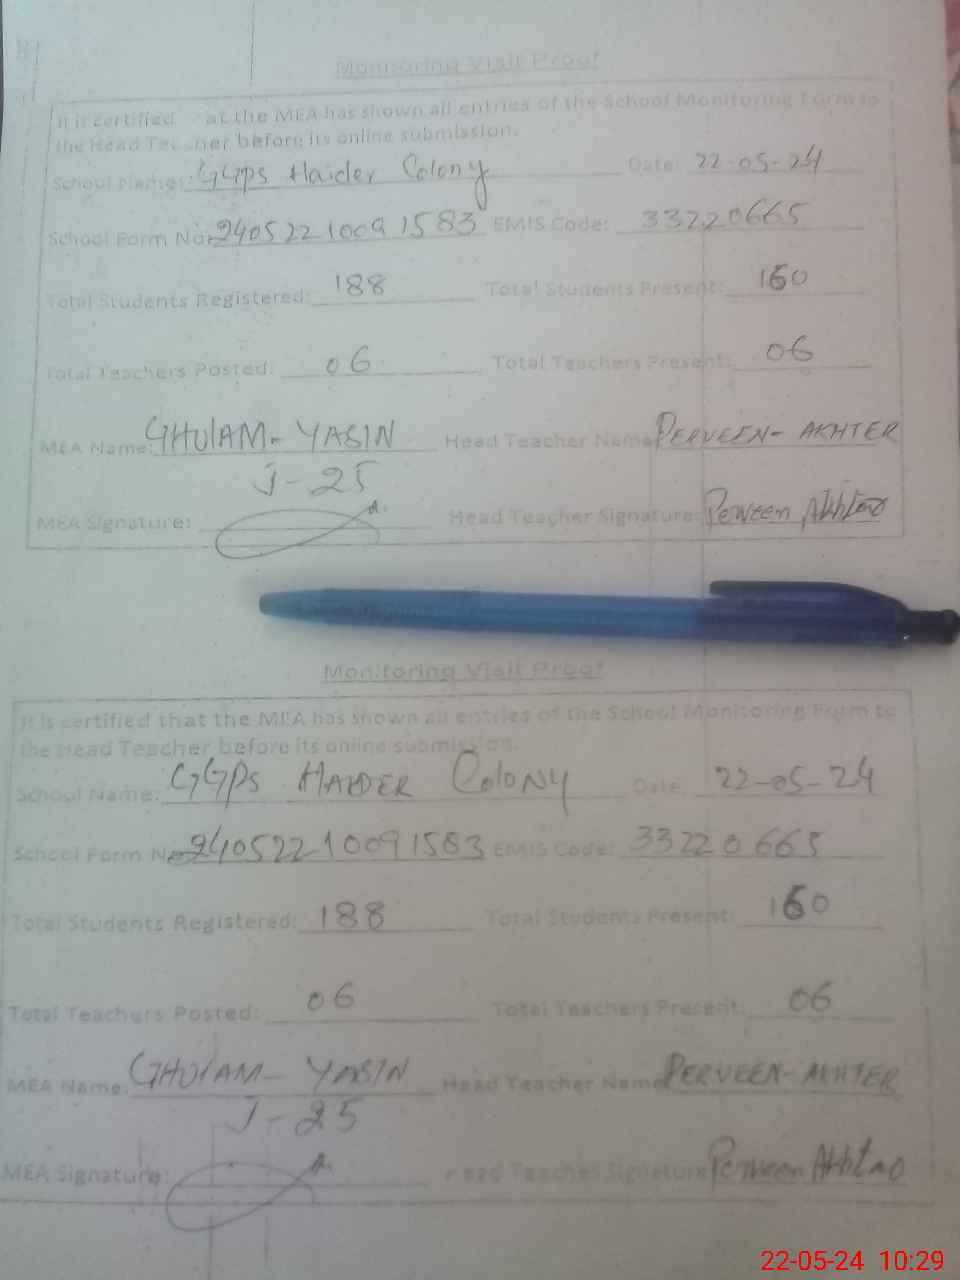 Monitoring Visit Proof
It is certified at the MEA has shown all entries of the School Monitoring Form to
the Head Teacher before its online submission.
School Name: GGps Haider Colony Date: 22-05-24
School Form No: 2405221009 1583 EMIS Code: 33220665
Total Students Registered: 188 Total Students Present: 160
Total Teachers Posted: 06 Total Teachers Present: 06
MEA Name: GHULAM- YASIN Head Teacher Name PERVEEN- AKHTER
J-25
MEA Signature: Head Teacher Signature: Perveen Akhtar
Monitoring Visit Proof
It is certified that the MEA has shown all entries of the School Monitoring Form to
the Head Teacher before its online submission.
School Name: GGPS HAIDER COLONY Date: 22-05-24
School Form No 24052210091583 EMIS Code: 33220665
Total Students Registered: 188 Total Students Present: 160
Total Teachers Posted: 06 Total Teachers Present: 06
MEA Name: GHULAM- YASIN Head Teacher Name PERVEEN- AKHTER
J-25
MEA Signature: Head Teacher Signature Perveen Akhtar
22-05-24 10:29